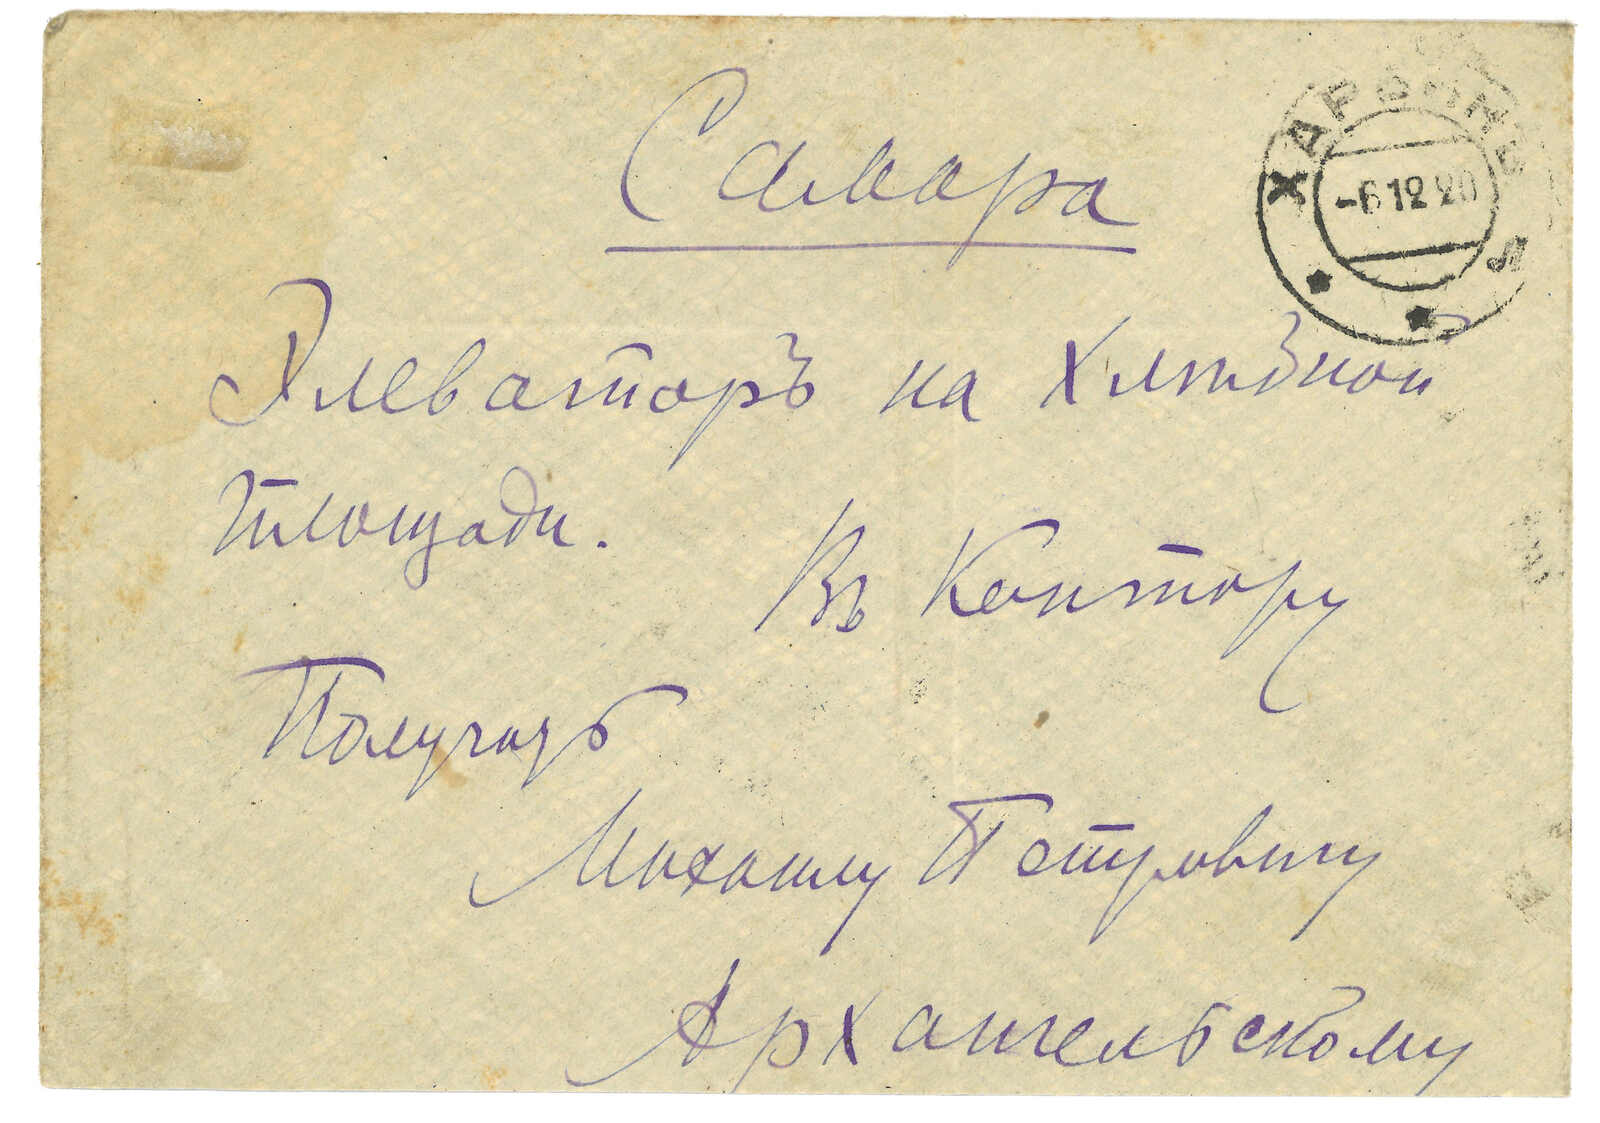 Самара
ХАРБИНЪ
-6 12 20
Элеваторъ на Хлѣбной
площади.
Въ Контору
Получать
Михаилу Петровичу
Архангельскому